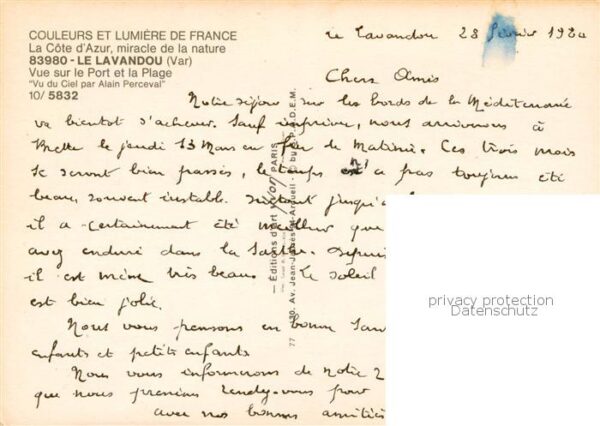 COULEURS ET LUMIÈRE DE FRANCE
La Côte d'Azur, miracle de la nature
83980 - LE LAVANDOU (Var)
Vue sur le Port et la Plage
"Vu du Ciel par Alain Perceval"
10/ 5832
Le Lavandou 28 février 19
Chers Amis
Notre séjour sur les bords de la Méditerranée
va bientôt s'achever. Sauf imprévu, nous arriverons à
le jeudi 13 Mars en fin de Matinée. Ces trois mois
se seront bien passés, le temps n'a pas toujours été
beau, souvent instable. Surtout
il a certainement été meilleur que
avez enduré dans la Sarthe. Depuis
il est même très beau le soleil
est bien jolie.
Nous vous pensons en bonne San
enfants et petits enfants.
Nous vous informerons de notre
que nous prenions rendez-vous pour
avec nos bonnes amitiés
— Éditions d'art Yvon PARIS
privacy protection
Datenschutz